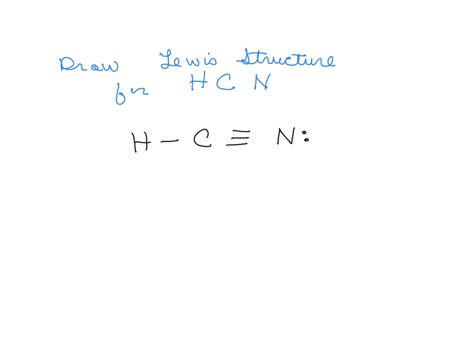 Draw Lewis Structure
for H C N
H - C ≡ N: